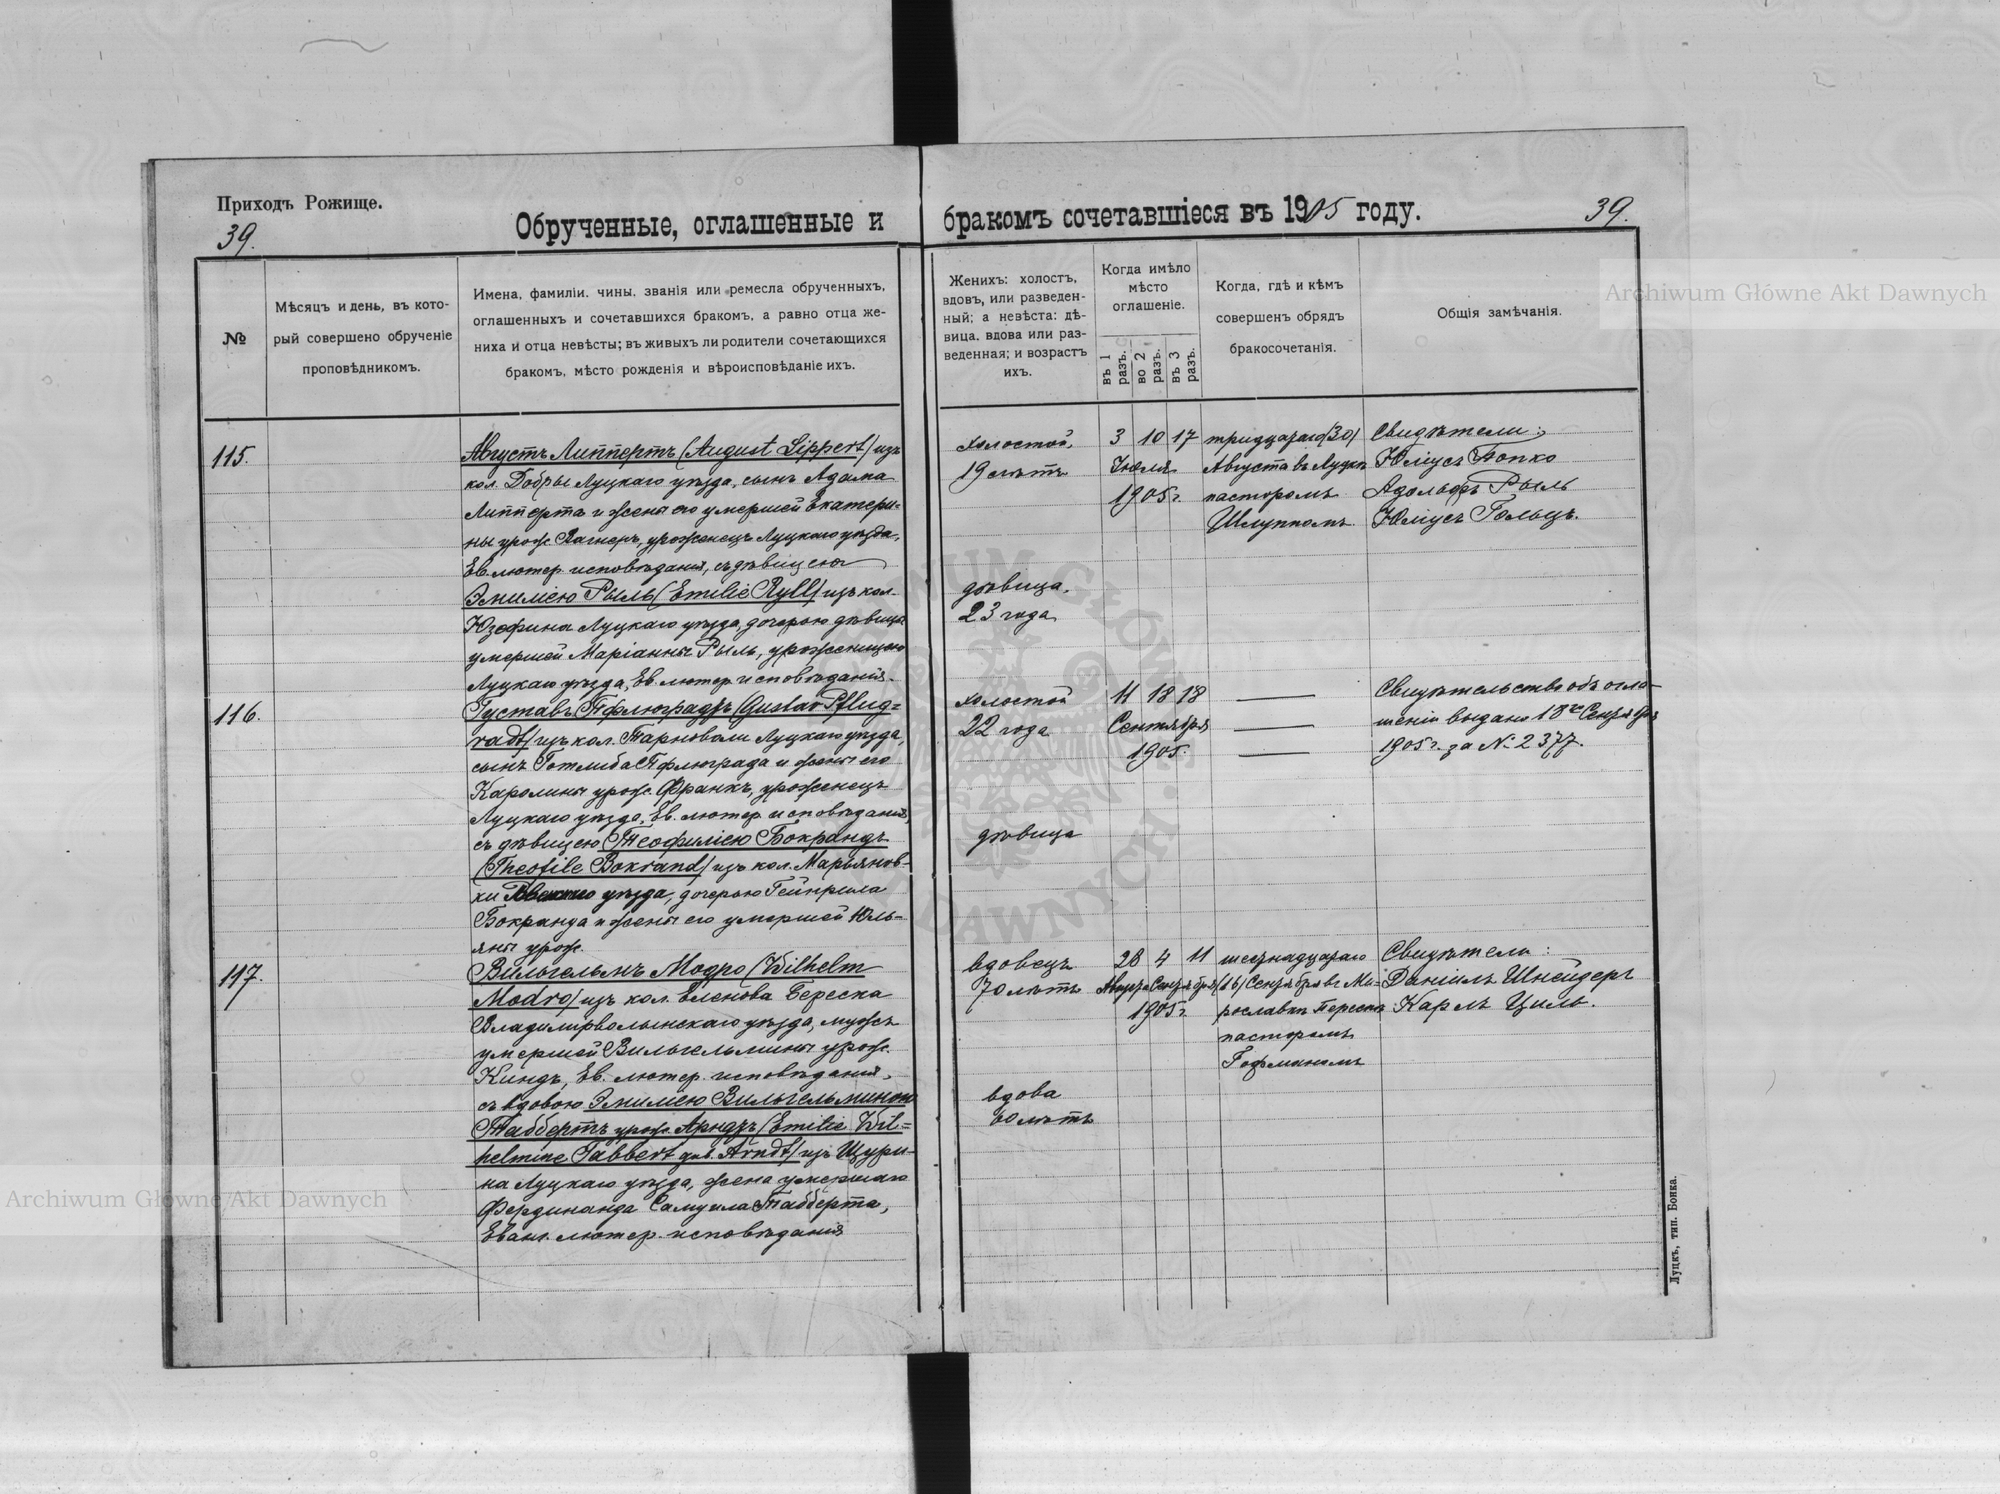 Приходъ Рожище.
39.
Обрученные, оглашенные и бракомъ сочетавшіеся въ 1905 году.
39.
№
Мѣсяцъ и день, въ кото-
рый совершено обрученіе
проповѣдникомъ.
Имена, фамиліи, чины, званія или ремесла обрученныхъ,
оглашенныхъ и сочетавшихся бракомъ, а равно отца же-
ниха и отца невѣсты; въ живыхъ ли родители сочетающихся
бракомъ, мѣсто рожденія и вѣроисповѣданіе ихъ.
Женихъ: холостъ,
вдовъ, или разведен-
ный; а невѣста: дѣ-
вица, вдова или раз-
веденная; и возрастъ
ихъ.
Когда имѣло
мѣсто
оглашеніе.
въ 1
разъ.
во 2
разъ.
въ 3
разъ.
Когда, гдѣ и кѣмъ
совершенъ обрядъ
бракосочетанія.
Общія замѣчанія.
115.
Августъ Липпертъ (August Lippert) изъ
кол. Добры Луцкаго уѣзда, сынъ Адама
Липперта и жены его умершей Екатери-
ны урож. Вагнеръ, уроженецъ Луцкаго уѣзда,
Ев. лютер. исповѣданія, съ дѣвицею
Эмиліею Рыль (Emilie Ryll) изъ кол.
Юзефины Луцкаго уѣзда, дочерью дѣвицы
умершей Маріанны Рыль, уроженицею
Луцкаго уѣзда, Ев. лютер. исповѣданія.
холостой,
19 лѣтъ
дѣвица,
23 года
3 10 17
Іюля
1905 г.
тридцатаго (30)
Августа въ Луцкѣ
пасторомъ
Шлуппомъ
Свидѣтели:
Юліусъ Попко
Адольфъ Рыль
Юліусъ Гольцъ.
116.
Густавъ Пфлюградтъ (Gustav Pflug=
radt) изъ кол. Тарноволи Луцкаго уѣзда,
сынъ Готлиба Пфлюграда и жены его
Каролины урож. Франкъ, уроженецъ
Луцкаго уѣзда, Ев. лютер. исповѣданія,
съ дѣвицею Теофиліею Бокрандъ
(Theofile Bokrand) изъ кол. Марьянов-
ки уѣзда, дочерью Гейнриха
Бокранда и жены его умершей Юль-
яны урож.
холостой
22 года
дѣвица
11 18 18
Сентября
1905.
Свидѣтельство объ огла-
шеніи выдано 18го Сентября
1905 г. за № 2377.
117.
Вильгельмъ Модро (Wilhelm
Modro) изъ кол. Еленова Береска
Владимірволынскаго уѣзда, мужъ
умершей Вильгельмины урож.
Киндъ, Ев. лютер. исповѣданія,
съ вдовою Эмиліею Вильгельминою
Таббертъ урож. Арндтъ (Emilie Wil=
helmine Tabbert geb. Arndt) изъ Щури-
на Луцкаго уѣзда, жена умершаго
Фердинанда Самуила Табберта,
Еванг. лютер. исповѣданія
вдовецъ
70 лѣтъ
вдова
60 лѣтъ
28 4 11
Августа Сентября
1905 г.
шестнадцатаго
(16) Сентября въ Ми-
рославкѣ
пасторомъ
Гофманомъ
Свидѣтели:
Даніилъ Шнейдеръ
Карлъ Циль.
Луцкъ, тип. Бонка.
Archiwum Główne Akt Dawnych
Archiwum Główne Akt Dawnych